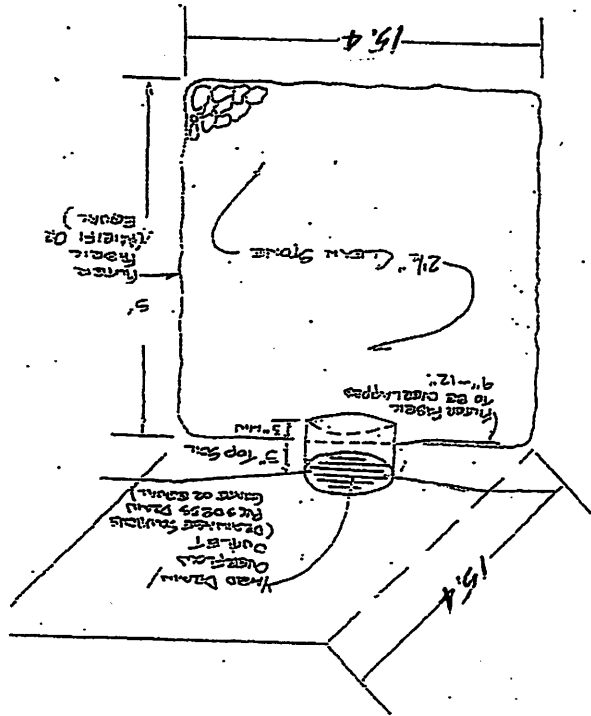 15.4
YARD DRAIN
OVERFLOW
OUTLET
(DRAINAGE SOLUTIONS
DRAIN
OR EQUAL)
TOP SOIL
3" MIN
FILTER FABRIC
TO BE OVERLAPPED
9"-12"
2½" CLEAN STONE
5'
FILTER
FABRIC
(MIRIFI OR
EQUAL)
15.4